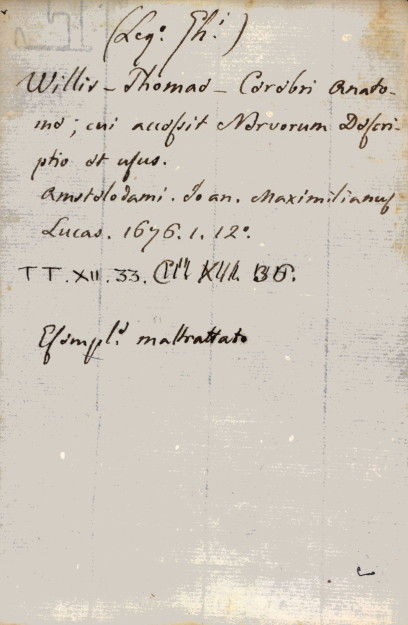 (Leg.º Gh.i)
Willis - Thomas - Cerebri Anato-
me; cui accessit Nervorum Descri-
ptio et usus.
Amstelodami. Joan. Maximilianus
Lucas. 1676. 1. 12º.
TT. XII. 33.
Esempl.e maltrattato